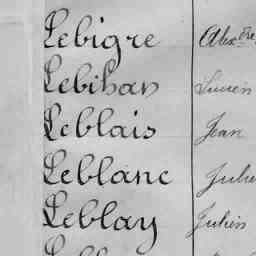 Lebigre Alexdre
Lebihan Lucien
Leblais Jean
Leblanc Jules
Leblay Julien